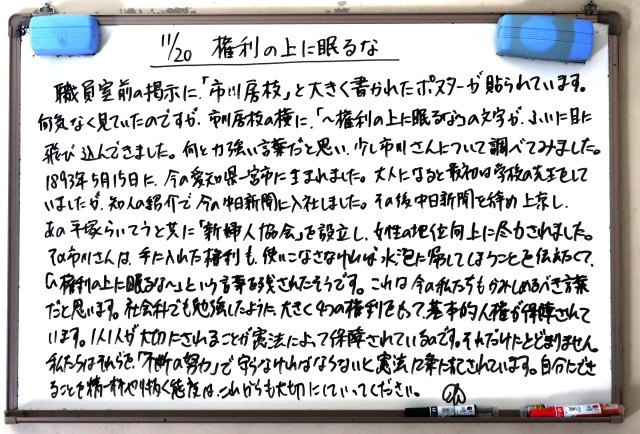 11/20 権利の上に眠るな
職員室前の掲示に、「市川房枝」と大きく書かれたポスターが貼られています。
何気なく見ていたのですが、市川房枝の横に、「〜権利の上に眠るな〜」の文字が、ふいに目に
飛び込んできました。何と力強い言葉だと思い、少し市川さんについて調べてみました。
1893年5月15日に、今の愛知県一宮市に生まれました。大人になると最初は学校の先生をして
いましたが、知人の紹介で今の中日新聞に入社しました。その後中日新聞を辞め上京し、
あの平塚らいてうと共に「新婦人協会」を設立し、女性の地位向上に尽力されました。
その市川さんは、手に入れた権利も、使いこなさなければ水泡に帰してしまうことを伝えたくて、
「〜権利の上に眠るな〜」という言葉を残されたそうです。これは今の私たちもかみしめるべき言葉
だと思います。社会科でも勉強したように、大きく4つの権利をもって、基本的人権が保障されて
います。1人1人が大切にされることが憲法によって保障されているのです。それだけにとどまりません。
私たちはそれらを、「不断の努力」で守らなければならないと憲法に筆記されています。自分にでき
ることを精一杯やり抜く態度は、これからも大切にしていってください。